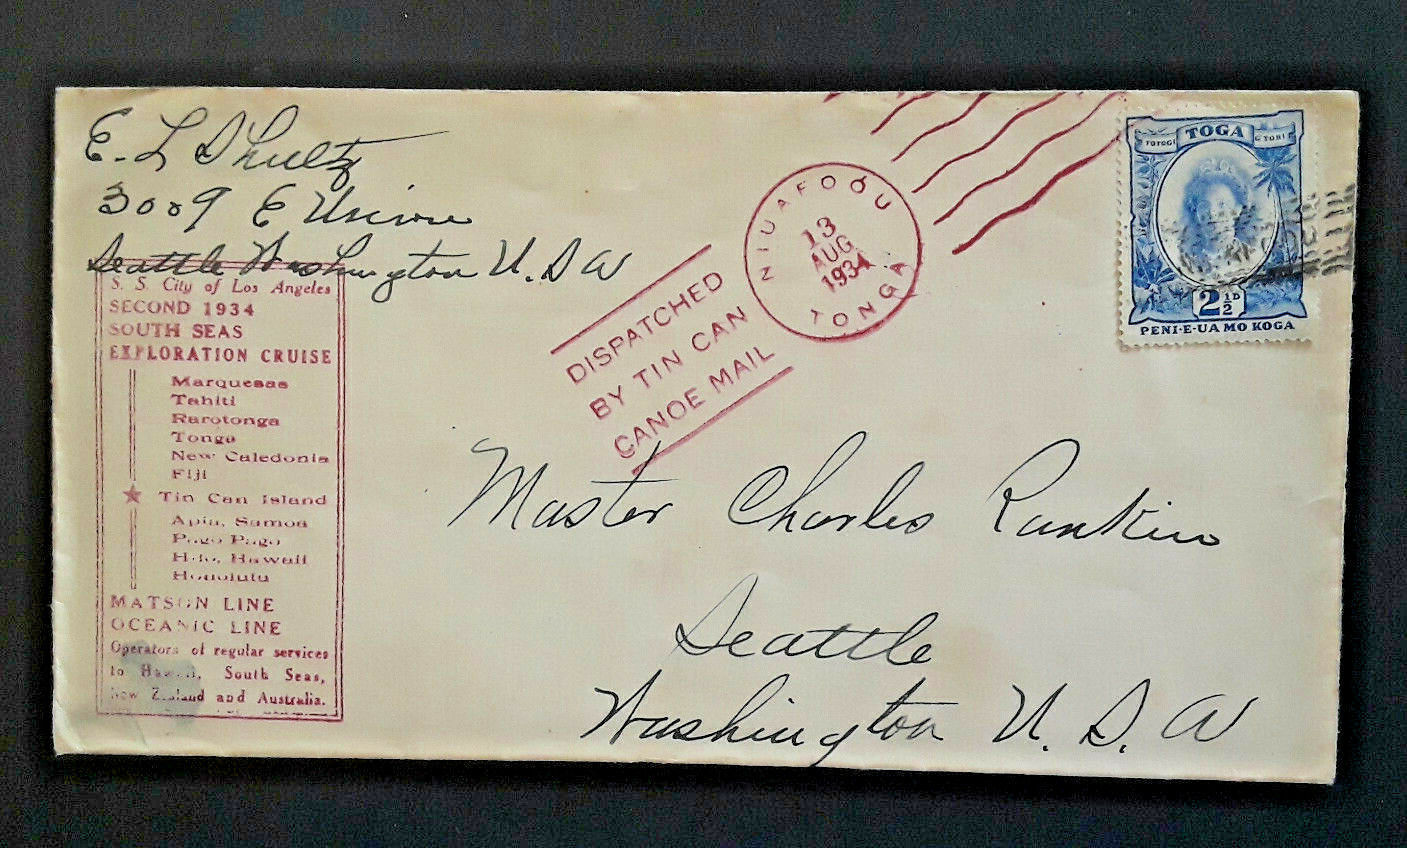 E. L Shultz
3009 E Union
Seattle Washington U.S A
S. S. City of Los Angeles
SECOND 1934
SOUTH SEAS
EXPLORATION CRUISE
Marquesas
Tahiti
Rarotonga
Tonga
New Caledonia
Fiji
★ Tin Can Island
Apia, Samoa
Pago Pago
Hilo, Hawaii
Honolulu
MATSON LINE
OCEANIC LINE
Operators of regular services
to Hawaii, South Seas,
New Zealand and Australia.
DISPATCHED
BY TIN CAN
CANOE MAIL
NIUAFOOU
13
AUG
1934
TONGA
TOGA
TOTOGI
2½D
PENI·E·UA MO KOGA
Master Charles Rankin
Seattle
Washington U. S. A